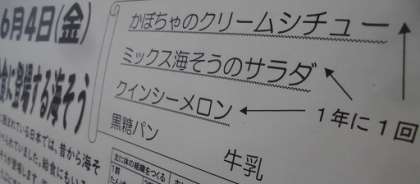 6月4日(金)
かぼちゃのクリームシチュー
ミックス海そうのサラダ
クインシーメロン
1年に1回
黒糖パン
牛乳
食に登場する海そう
まれている日本では、昔から海そ
主に体の組織をつくる
1群